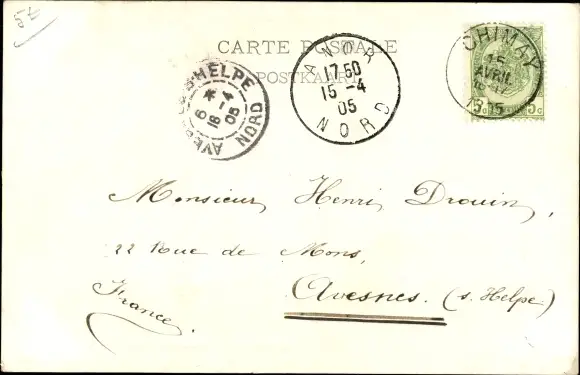 52
CARTE POSTALE
POSTKAART
ANOR
17 50
15 - 4
05
NORD
CHIMAY
15
AVRIL
1905
5 c 5 c
AVESNES S HELPE
6 *
16 - 4
05
NORD
Monsieur Henri Drouin,
22 Rue de Mons,
Avesnes. (s. Helpe)
France